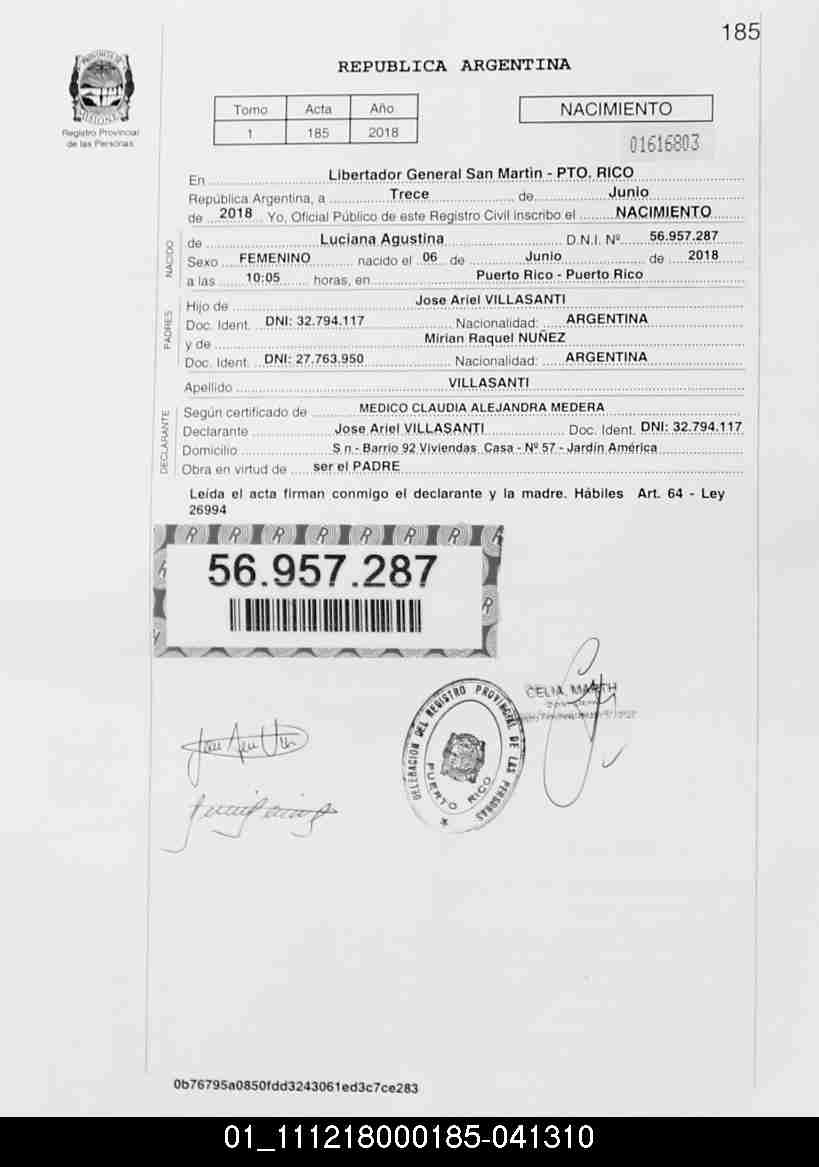 185
REPUBLICA ARGENTINA
PROVINCIA DE MISIONES
Registro Provincial
de las Personas
Tomo Acta Año
1 185 2018
NACIMIENTO
01616803
En Libertador General San Martin - PTO. RICO
República Argentina, a Trece de Junio
de 2018 Yo, Oficial Público de este Registro Civil inscribo el NACIMIENTO
NACIDO
de Luciana Agustina D.N.I. Nº 56.957.287
Sexo FEMENINO nacido el 06 de Junio de 2018
a las 10:05 horas, en Puerto Rico - Puerto Rico
PADRES
Hijo de Jose Ariel VILLASANTI
Doc. Ident. DNI: 32.794.117 Nacionalidad: ARGENTINA
y de Mirian Raquel NUÑEZ
Doc. Ident. DNI: 27.763.950 Nacionalidad: ARGENTINA
Apellido VILLASANTI
DECLARANTE
Según certificado de MEDICO CLAUDIA ALEJANDRA MEDERA
Declarante Jose Ariel VILLASANTI Doc. Ident. DNI: 32.794.117
Domicilio S n - Barrio 92 Viviendas Casa - Nº 57 - Jardín América
Obra en virtud de ser el PADRE
Leída el acta firman conmigo el declarante y la madre. Hábiles Art. 64 - Ley
26994
R R R R R R R R
56.957.287
DELEGACION DEL REGISTRO PROVINCIAL DE LAS PERSONAS
PUERTO RICO
CELIA MARTH
0b76795a0850fdd3243061ed3c7ce283
01_111218000185-041310